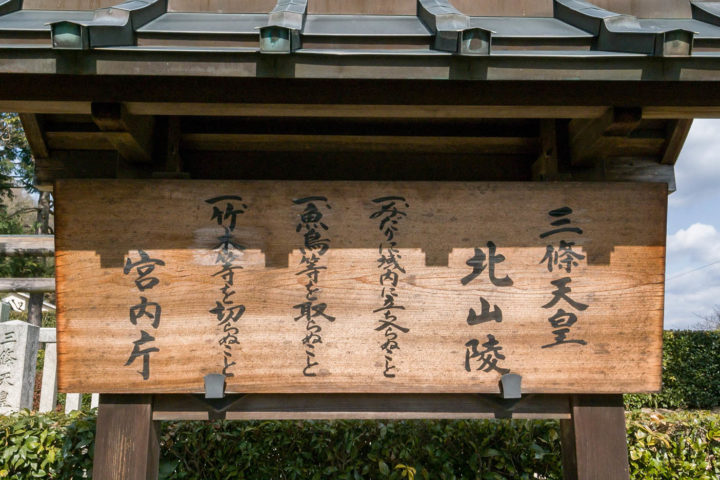 三條天皇
北山陵
一、みだりに域内に立ち入らぬこと
一、魚鳥等を取らぬこと
一、竹木等を切らぬこと
宮内庁
三條天皇